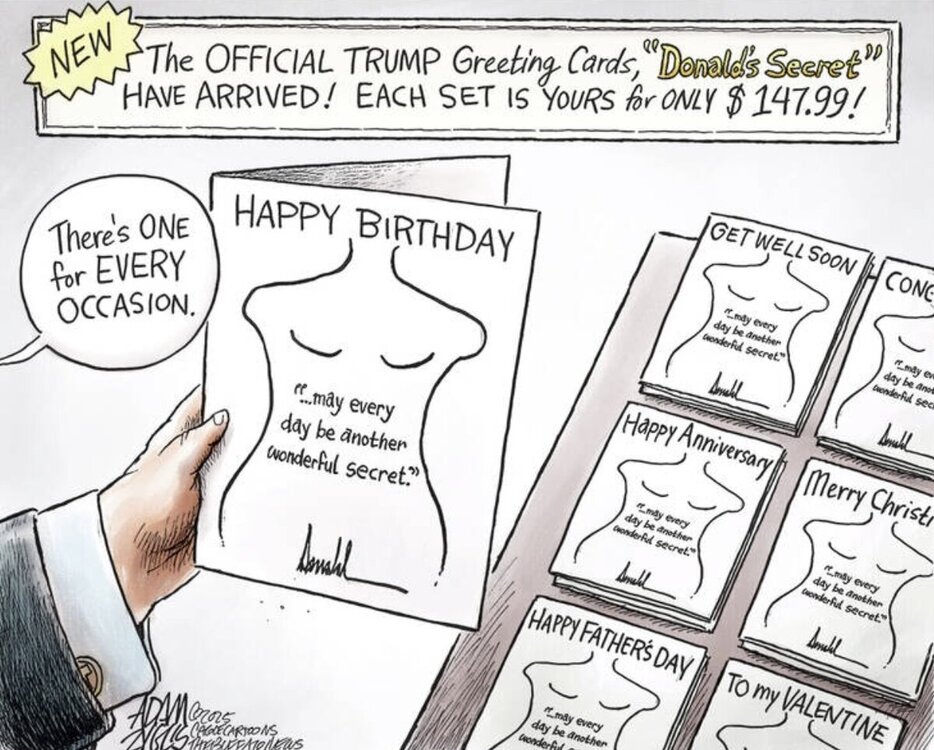 NEW
The OFFICIAL TRUMP Greeting Cards, "Donald's Secret"
HAVE ARRIVED! EACH SET IS YOURS for ONLY $147.99!
There's ONE
for EVERY
OCCASION.
HAPPY BIRTHDAY
"...may every
day be another
wonderful secret."
Donald
GET WELL SOON
"...may every
day be another
wonderful secret."
Donald
CONG
"...may eve
day be anot
wonderful sec
Donald
Happy Anniversary
"...may every
day be another
wonderful secret."
Donald
Merry Christ
"...may every
day be another
wonderful secret."
Donald
HAPPY FATHER'S DAY
"...may every
day be another
wonderful secret."
To my VALENTINE
ADAM
ZYGLIS
©2025
CAGLECARTOONS
THE BUFFALO NEWS